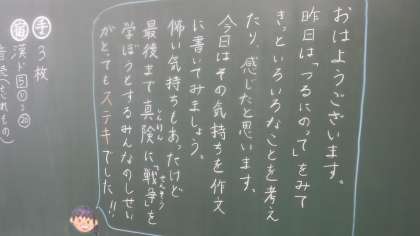 おはようございます。
昨日は「つるにのって」をみて
きっといろいろなことを考え
たり、感じたと思います。
今日はその気持ちを作文
に書いてみましょう。
怖い気持ちもあったけど
最後まで真険に「戦争」を
しんけん
せんそう
学ぼうとするみんなのしせい
がとってもステキでした!!
手 3枚
漢ド 5 ①〜⑳
音読(わすれもの)